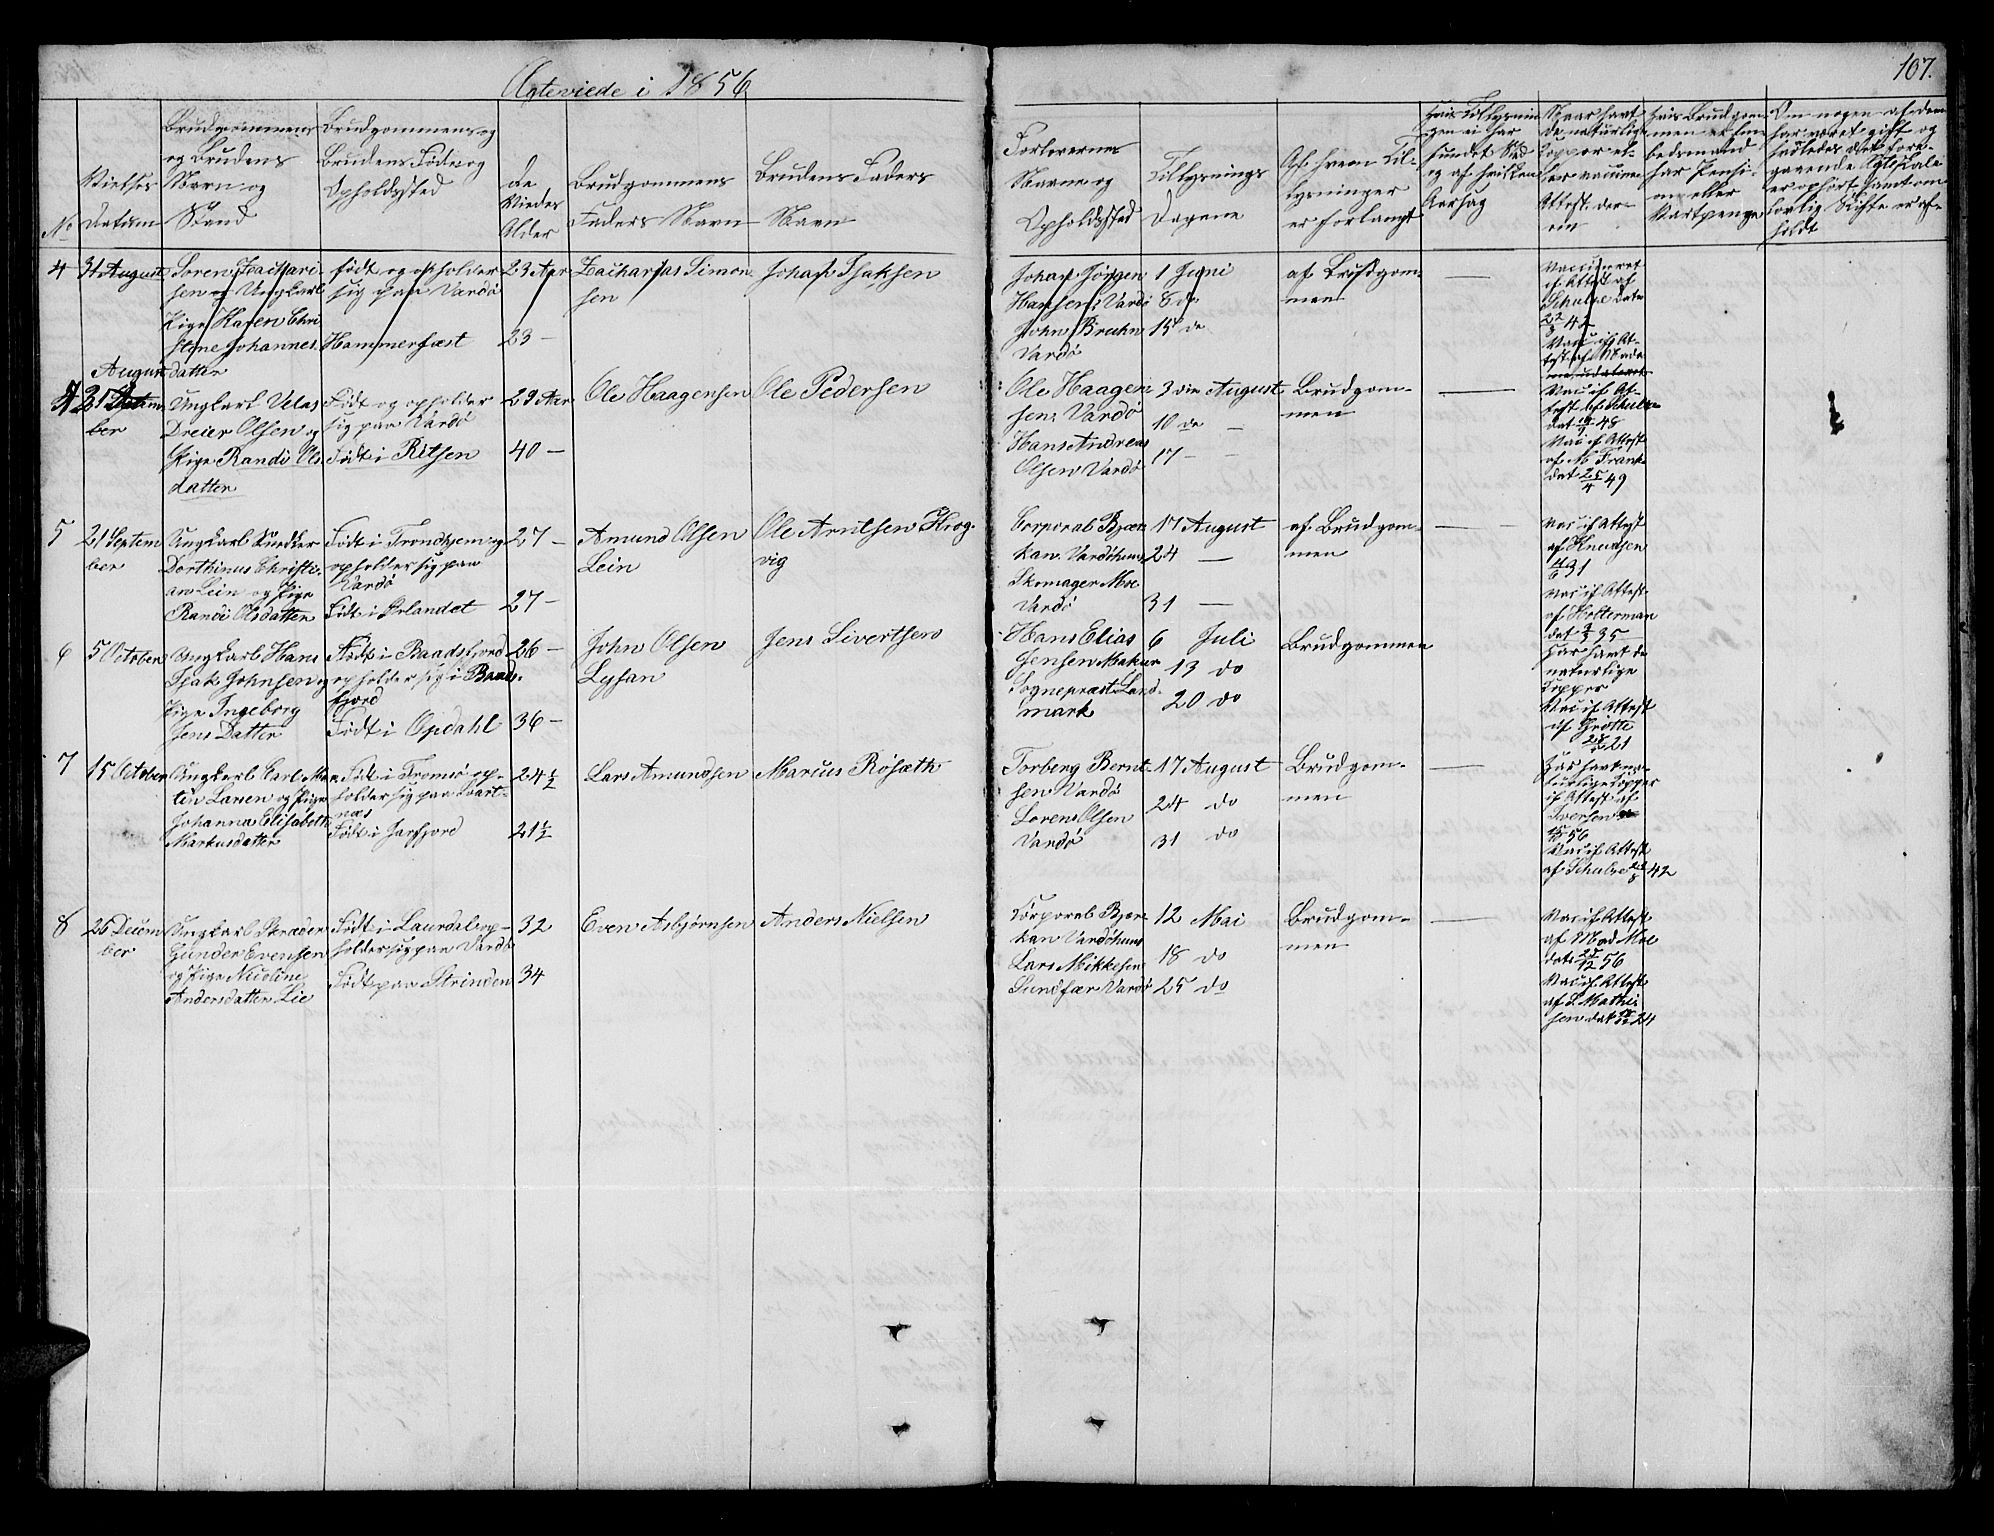 Ægteviede i 1856
107.
No
Vielses
Datum
Brudgommens
og Brudens
Navn og
Stand
Brudgommens og
Brudens Føde og
Opholdssted
De
Viedes
Alder
Brudgommens
Faders Navn
Brudens Faders
Navn
Forlovernes
Navne og
Opholdssted
Tillysnings
Dagene
Af hvem Til-
lysninger
er forlangt
Hvis Tillysnin
gen ei har
fundet Sted
og af hvilken
Aarsag
Naar havt
de naturlige
Kopper el-
ler vaccine
Attest der-
om
Hvis Brudgom-
men er Em-
bedsmand
har Pensi-
on eller
Vartpenge
Om nogen af dem
har været gift og
saaledes det fore-
gaaende Egteskab
er ophørt samt om
lovlig Skifte er af-
holdt
4
31 August
Søren Zachari-
sen og Ungkarl
Pige Karen Chri
stine Johannes
datter
født og opholder
sig paa Vardø
Hammerfest
23 Aar
23 —
Zacharias Simon-
sen
Johan Isaksen
Johan Jørgen
Hansen, Vardø
John Bruhn
Vardø
1 Juni
8 do
15 do
af Brudgom-
men
Vaccineret
if Attest af
Schulze dat
22/8 42
Vac if At-
test af Made
4
August
31
ber
Ungkarl Velas
Dreier Olsen og
Pige Randi Ols
datter
Født og opholder
sig paa Vardø
Født i Ritsen
29 Aar
40 —
Ole Haagensen
Ole Pedersen
Ole Haagen
sen, Vardø
Hans Andreas
Olsen Vardø
3 die August
10 de —
17 — —
Brudgom-
men
Vac if At-
test af Schulze
48
Vac if Attest
af M Frank
dat 25/4 49
5
21 Septem
ber
Ungkarl Snedker
Dorthinus Christi-
an Lein og Pige
Randi Olsdatter
Født i Trondhjem og
opholder sig paa
Vardø
Født i Ørlandet
27 —
27 —
Amund Olsen
Lein
Ole Arntsen Hrog-
vig
Corporal Bjær
kan Vardøhuus
Skomager Moe
Vardø
17 August
24 —
31 —
af Brudgom-
men
Vac if Attest
af Knudsen
4/6 31
Vac if Attest
af Holterman
35
6
5 October
Ungkarl Hans
Isak Johnsen og
Pige Ingeborg
Jens Datter
Født i Baadsfjord
opholder sig i Baads-
fjord
Født i Opdahl
26 —
36 —
John Olsen
Lysan
Jens Sivertsen
Hans Elias
Jensen Makur
Sognepræst Land-
mark
6 Juli
13 do
20 do
Brudgommen
Har havt de
naturlige
Kopper
Vac if Attest
af Grøtte
21
7
15 October
Ungkarl Carl Mor
tin Larsen og Pige
Johanna Elisabeth
Markusdatter
Født i Tromsø op-
holder sig paa Svart-
næs
Født i Jarfjord
24½
21½
Lars Amundsen
Marcus Rosæth
Torberg Bernt-
sen Vardø
Søren Olsen
Vardø
17 August
24 do
31 do
Brudgom-
men
Har havt na-
turlige Kopper
if Attest af
Iversen
56
Vac if Attest
af Schulze 22/8 42
8
26 Decem
ber
Ungkarl Skræder
Gunder Evensen
og Pige Nicoline
Andersdatter Lie
Født i Laurdal op-
holder sig paa Vardø
Født paa Strinden
32
34
Even Asbjørnsen
Anders Nielsen
Corporal Bjær
kan Vardøhuus
Lars Mikkelsen
Sundfær Vardø
12 Mai
18 do
25 do
Brudgom-
men
Vac if Attest
af Mad Moe
dat 27/12 56
Vac if Attest
af L Mathi-
sen dat 24